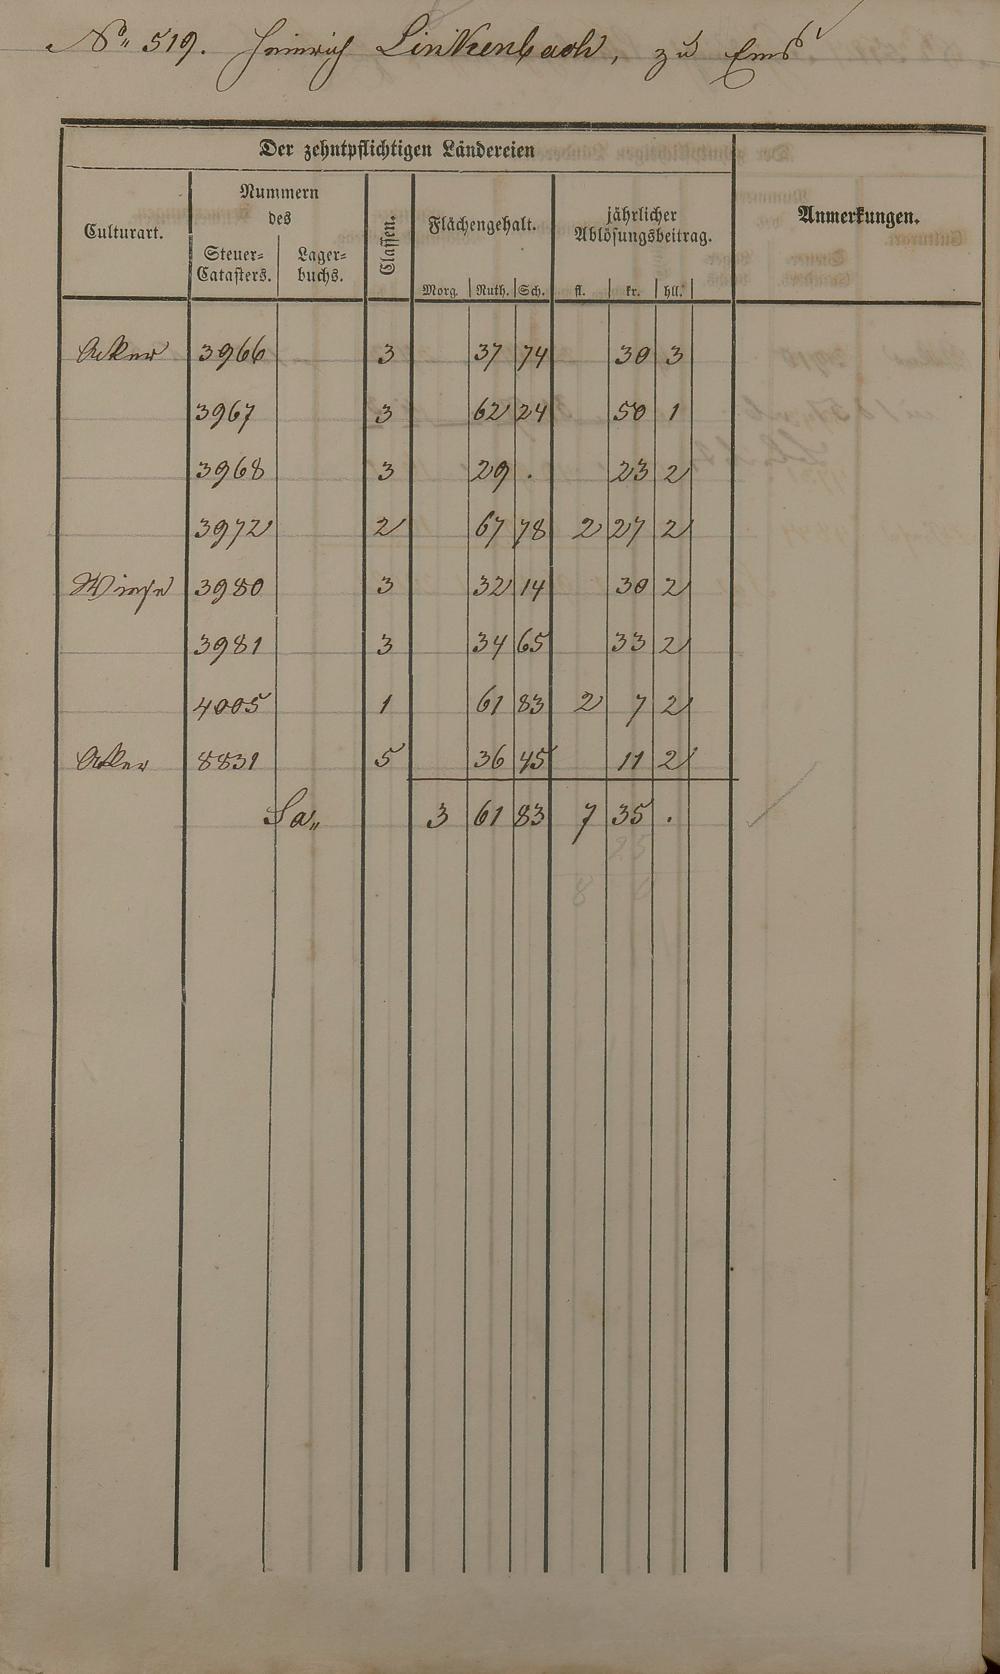 No. 519. Heinrich Linkenbach, zu Ems
Der zehntpflichtigen Ländereien
Culturart.
Nummern des
Steuer-Catasters.
Lager-buchs.
Classen.
Flächengehalt.
Morg. Ruth. Sch.
jährlicher Ablösungsbeitrag.
fl. kr. hll.
Anmerkungen.
Acker 3966 3 37 74 30 3
3967 3 62 24 50 1
3968 3 29 . 23 2
3972 2 67 78 2 27 2
Wiese 3980 3 32 14 30 2
3981 3 34 65 33 2
4005 1 61 83 2 7 2
Acker 8831 5 36 45 11 2
Sa. 3 61 83 7 35 .
25
8 0